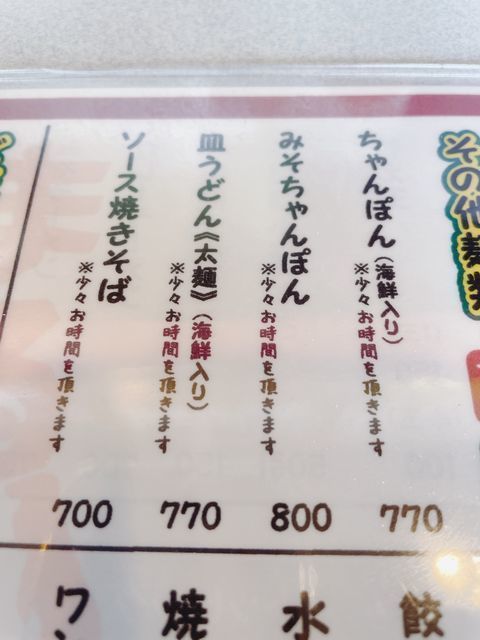 その他麺類
ちゃんぽん(海鮮入り)
※少々お時間を頂きます
770
みそちゃんぽん
※少々お時間を頂きます
800
皿うどん《太麺》(海鮮入り)
※少々お時間を頂きます
770
ソース焼きそば
※少々お時間を頂きます
700
餃
水
焼
ワン